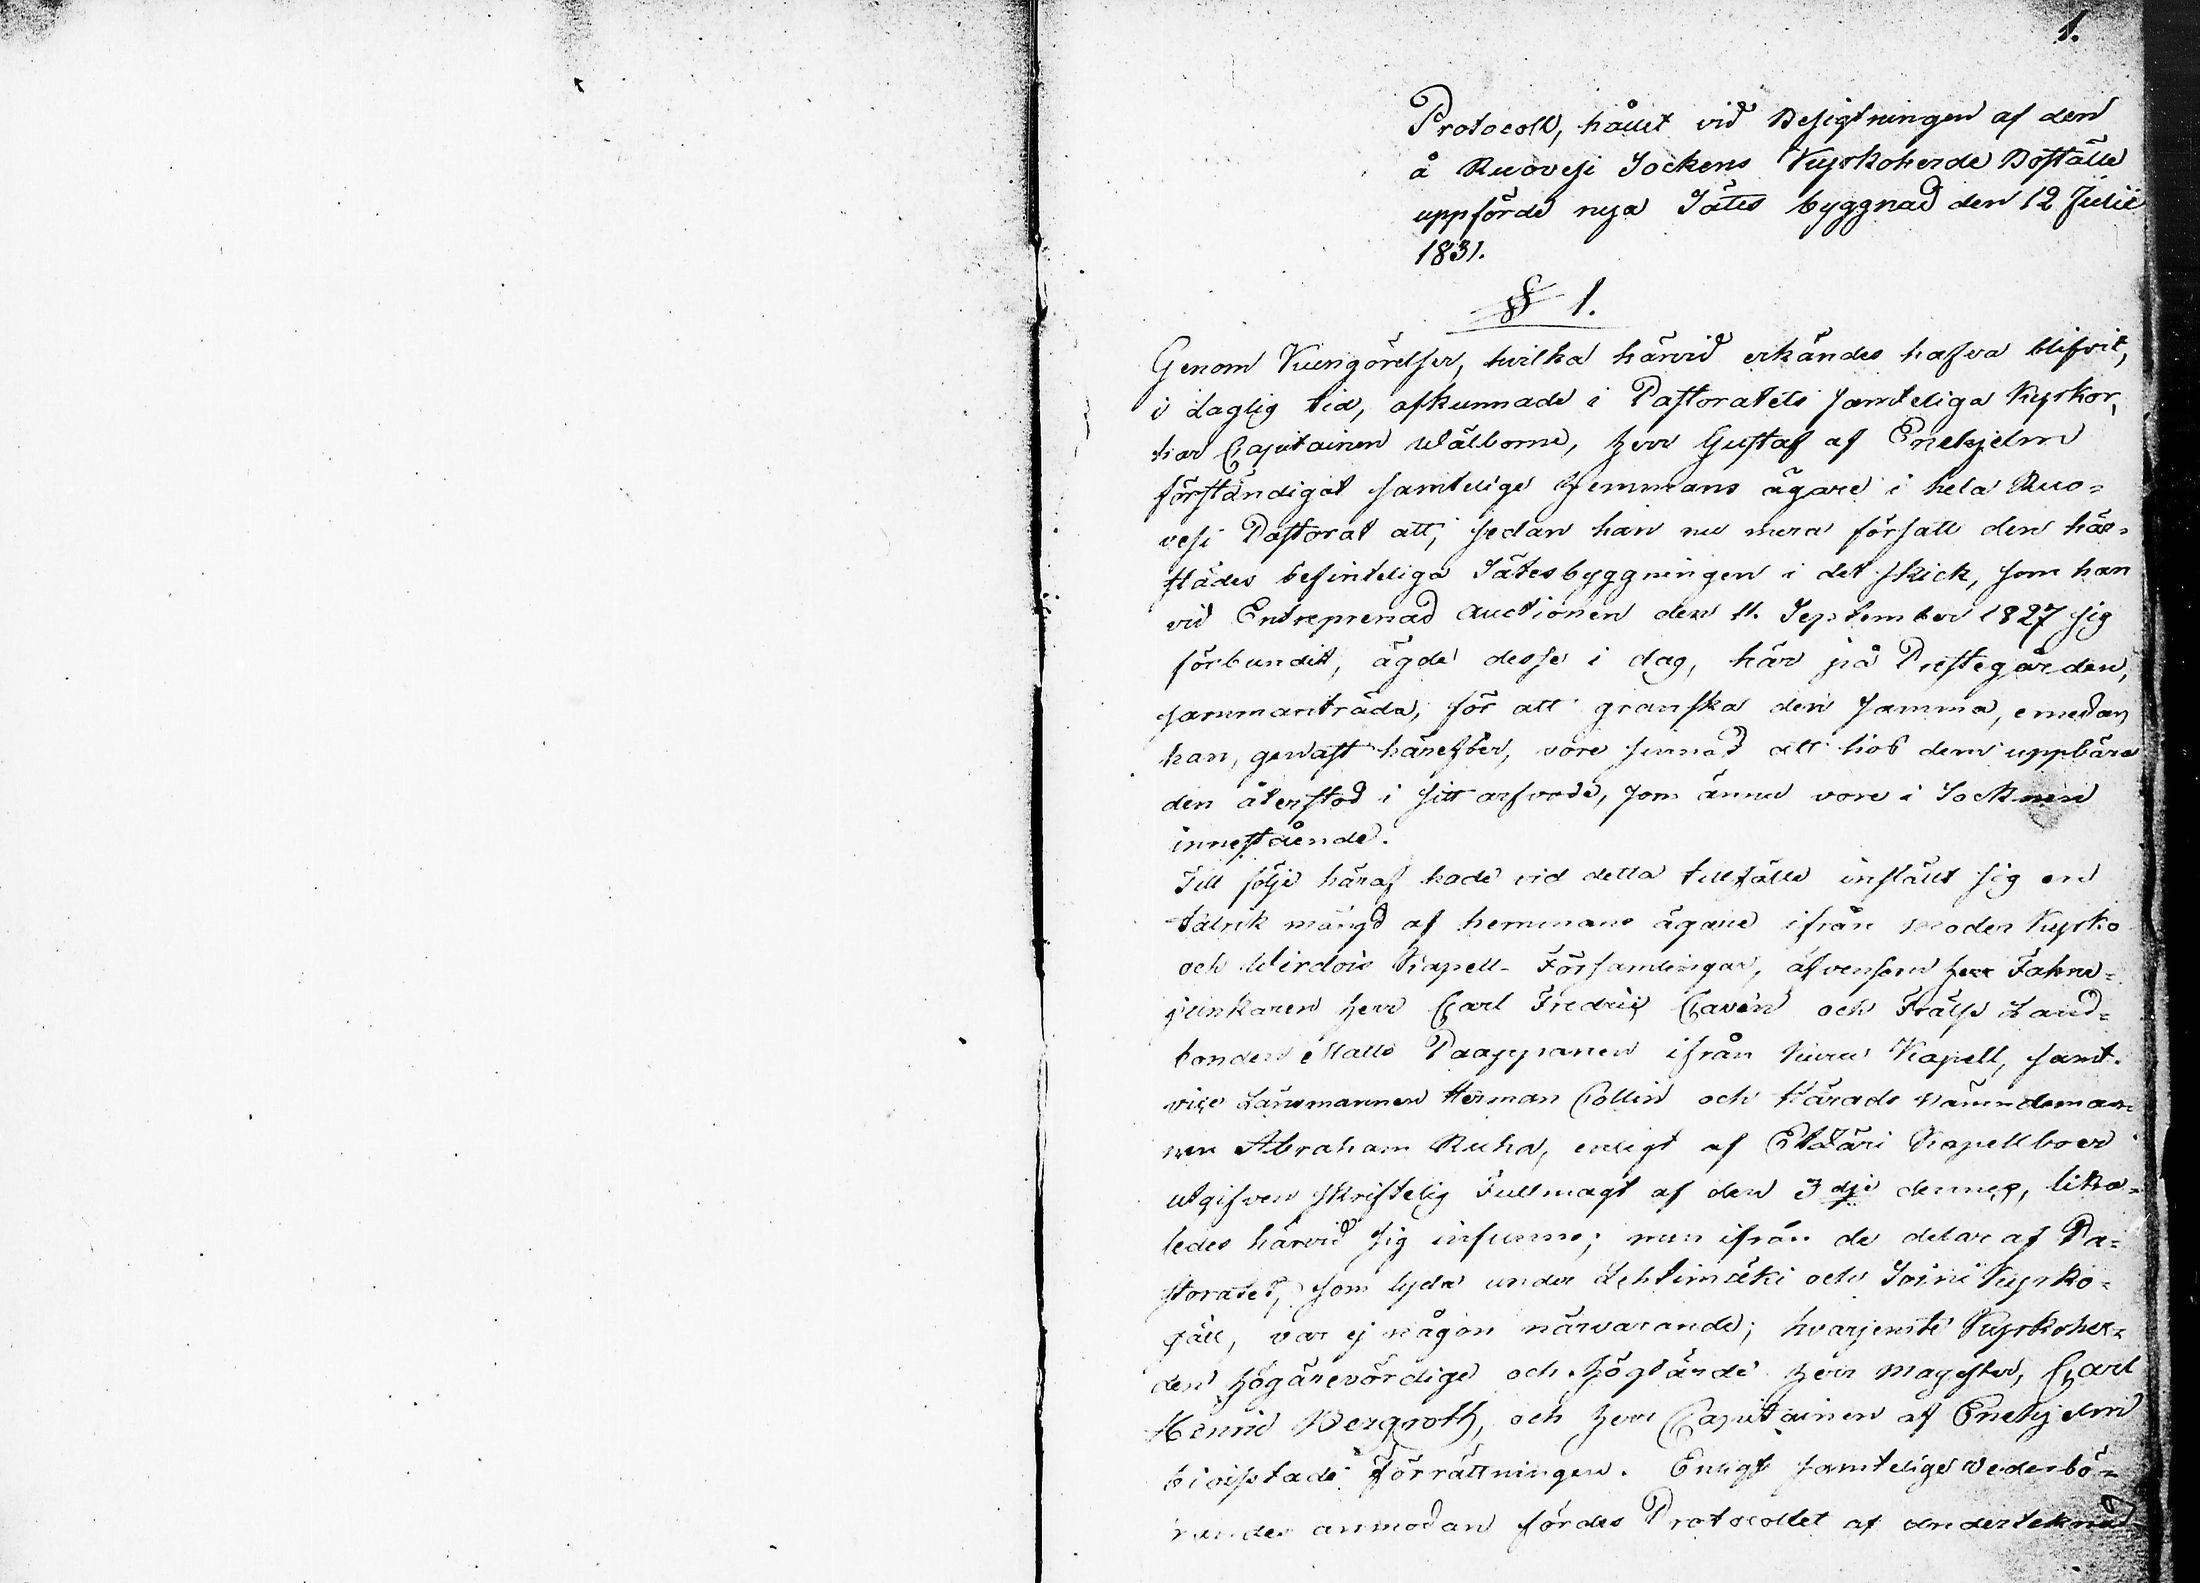 1.
Protocoll, hållit vid Besigtningen af den
å Ruovesi Sockens Kyrkoherde Boställe
uppförde nya Sätes byggnad den 12 Julii
1831.
§ 1.
Genom Kungörelser, hvilka härvid erkändes hafva blifvit,
i laglig tid, afkunnade i Pastoratets samteliga Kyrkor,
har Capitainen Wälborne, Herr Gustaf af Enehjelm
förständigat samtelige Hemmans ägare i hela Ruo=
vesi Pastorat att, sedan han nu mera försatt den här=
städes befinteliga Sätesbyggningen i det skick, som han
vid Entreprenad Auctionen den 11. September 1827 sig
förbundit, ägde desse i dag, här på Prestegården,
sammanträda, för att granska den samma, emedan
han, genast härefter, vore sinnad att hos dem uppbära
den återstod i sitt arfvode, som ännu vore i Socknen
innestående.
Till följe häraf hade vid detta tillfälle instält sig en
talrik mängd af hemmans ägare ifrån Moder Kyrko
och Wirdois Kapell-Församlingar, äfvensom Herr Fahne=
junkaren Herr Carl Fredric Cavén och Frälse Land=
bonden Matts Paappanen ifrån Kuru Kapell, samt
vice Länsmannen Herman Collin och Härads Nämndeman=
nen Abraham Ruha, enligt af Etzäri Kapellboer
utgifven skriftelig Fullmagt af den 3 dje dennes, lika=
ledes härvid sig infunno; men ifrån de delar af Pa=
storatet, som lyda under Lehtimäki och Soini Kyrko=
gäll, var ej någon närvarande; hvarjemte Kyrkoher=
den Högärevördige och Höglärde Herr Magister, Carl
Henric Bergroth, och Herr Capitainen af Enehjelm
bivistade Förrättningen. Enligt samtelige Vederbö=
randes anmodan fördes Protocollet af undertecknad